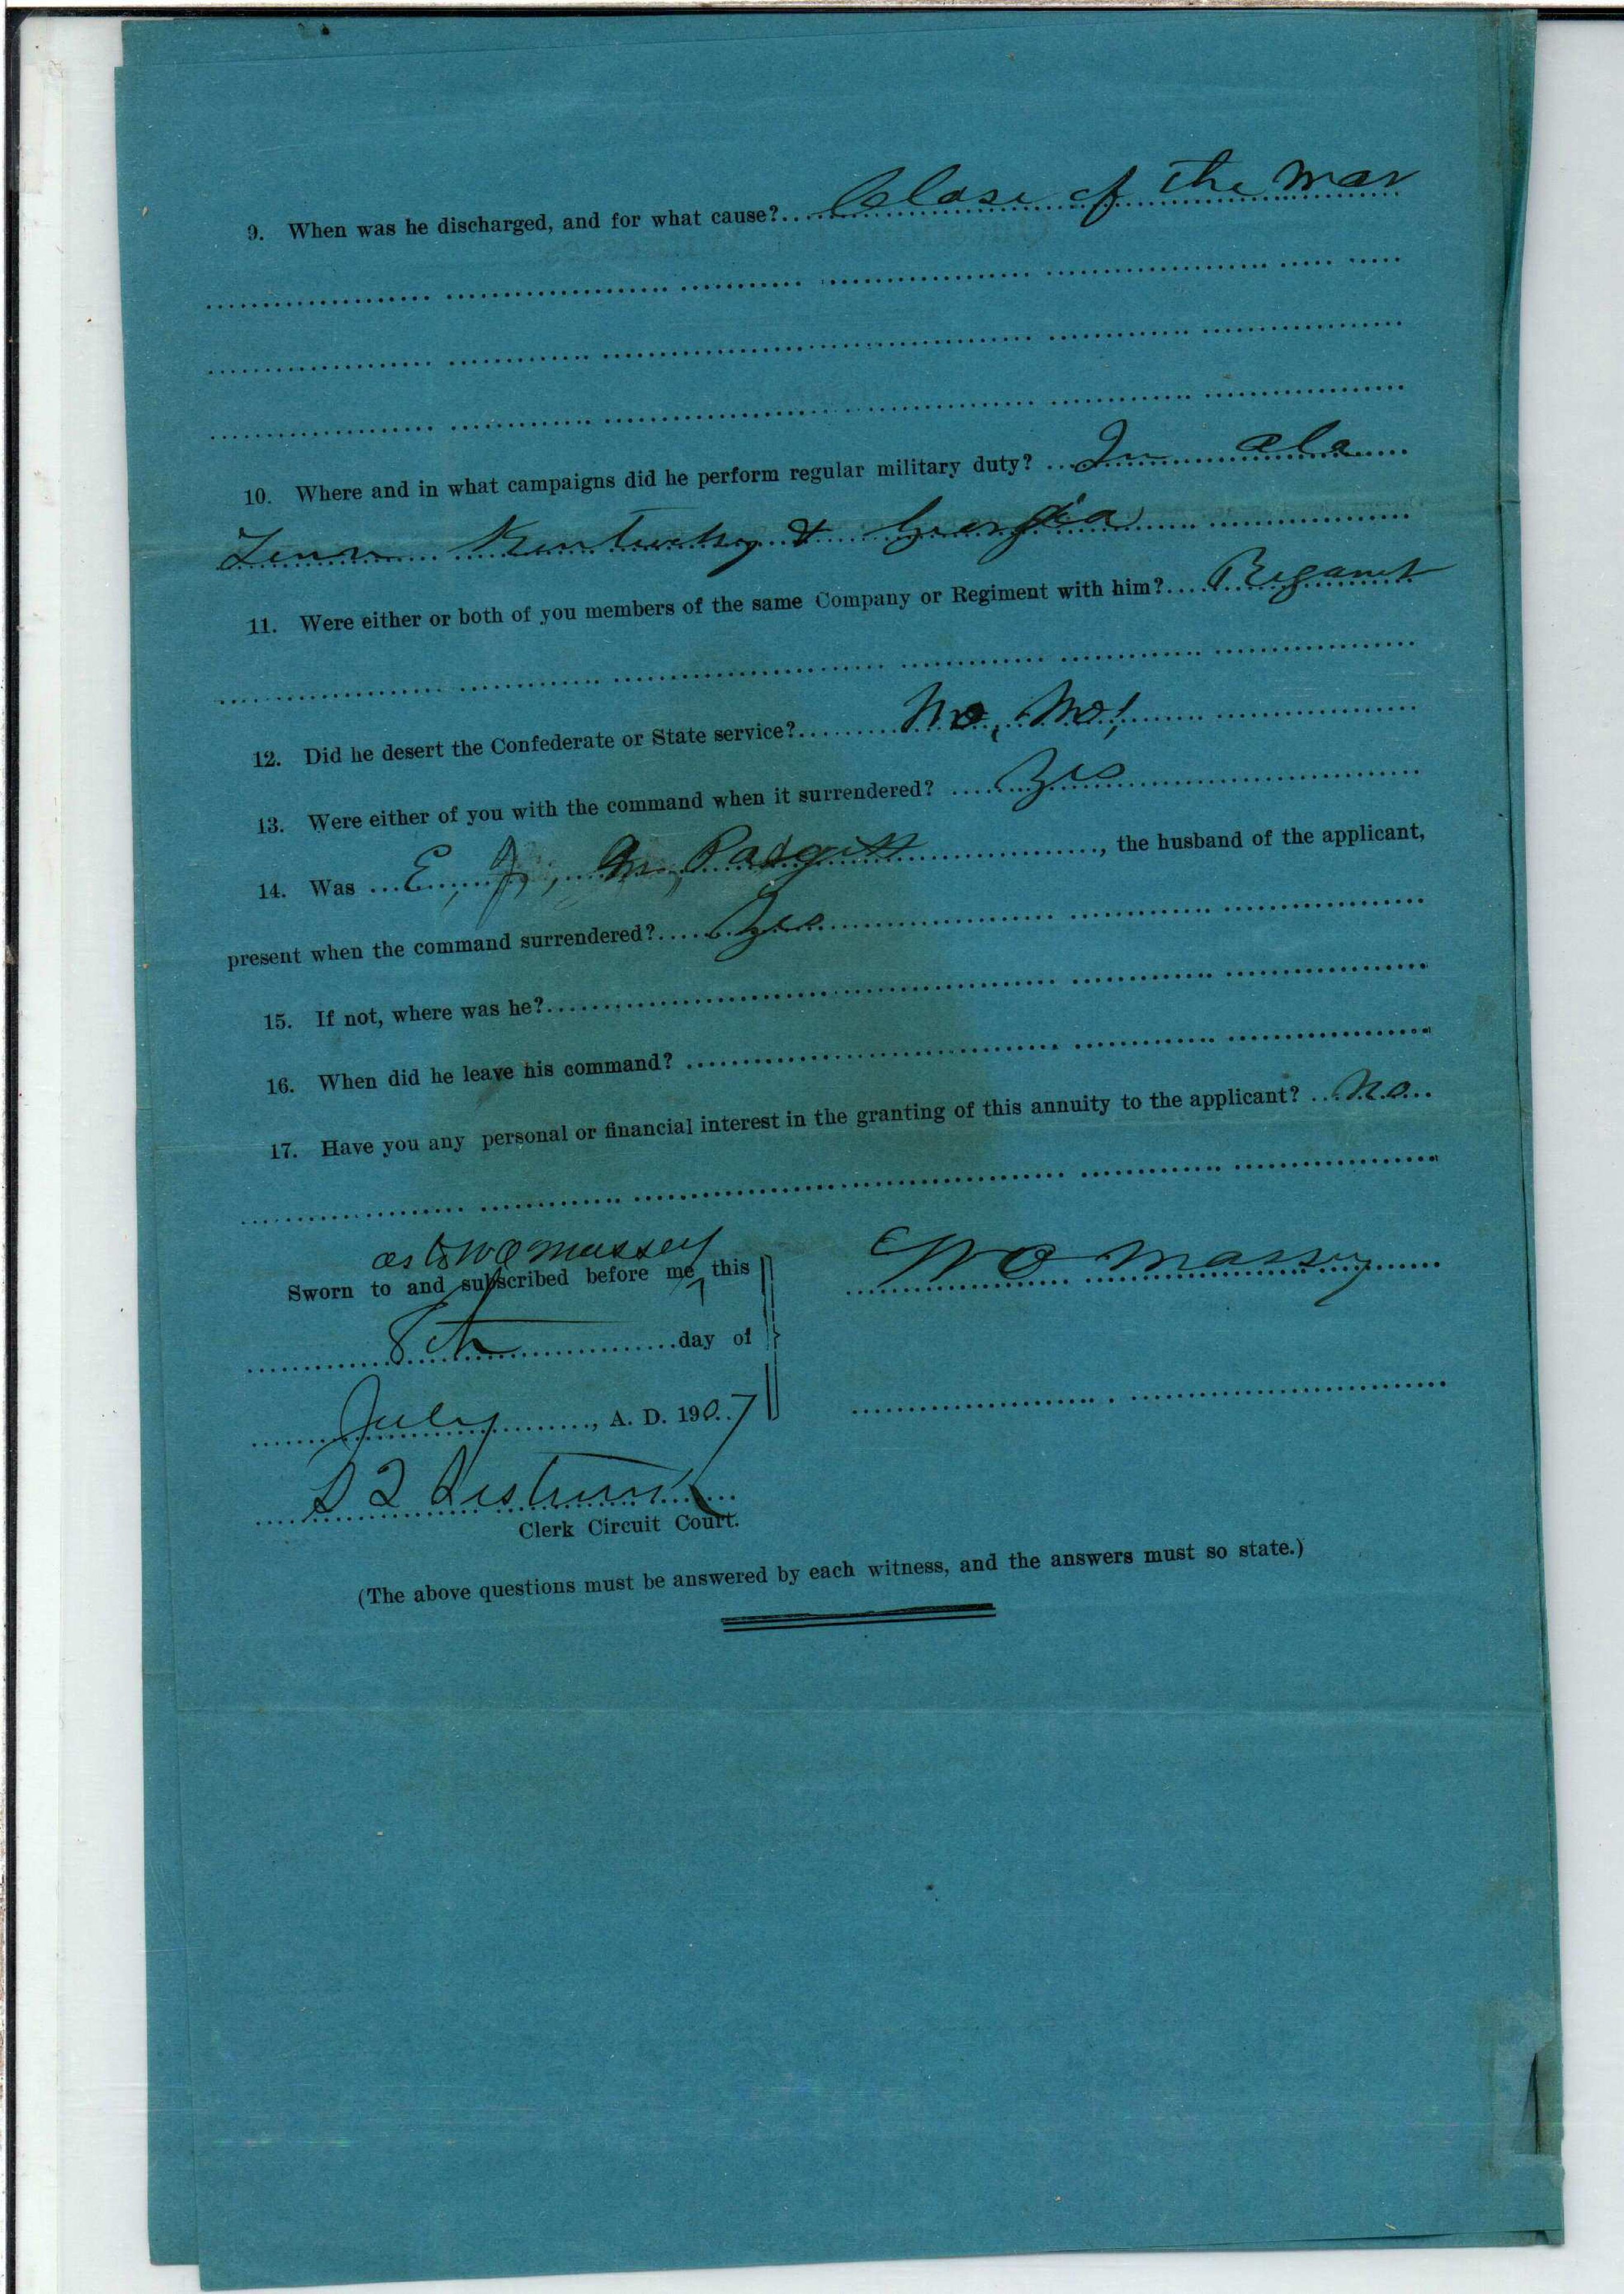 9. When was he discharged, and for what cause? Close of the War
10. Where and in what campaigns did he perform regular military duty? In Ala
Tenn Kentucky & Georgia
11. Were either or both of you members of the same Company or Regiment with him? Reganet
12. Did he desert the Confederate or State service? No, No!
13. Were either of you with the command when it surrendered? Yes
14. Was E, J, M, Padgett, the husband of the applicant,
present when the command surrendered? Yes
15. If not, where was he?
16. When did he leave his command?
17. Have you any personal or financial interest in the granting of this annuity to the applicant? No
as to W O Massey
Sworn to and subscribed before me this
W O Massey
8th day of
July, A. D. 1907
Clerk Circuit Court.
(The above questions must be answered by each witness, and the answers must so state.)